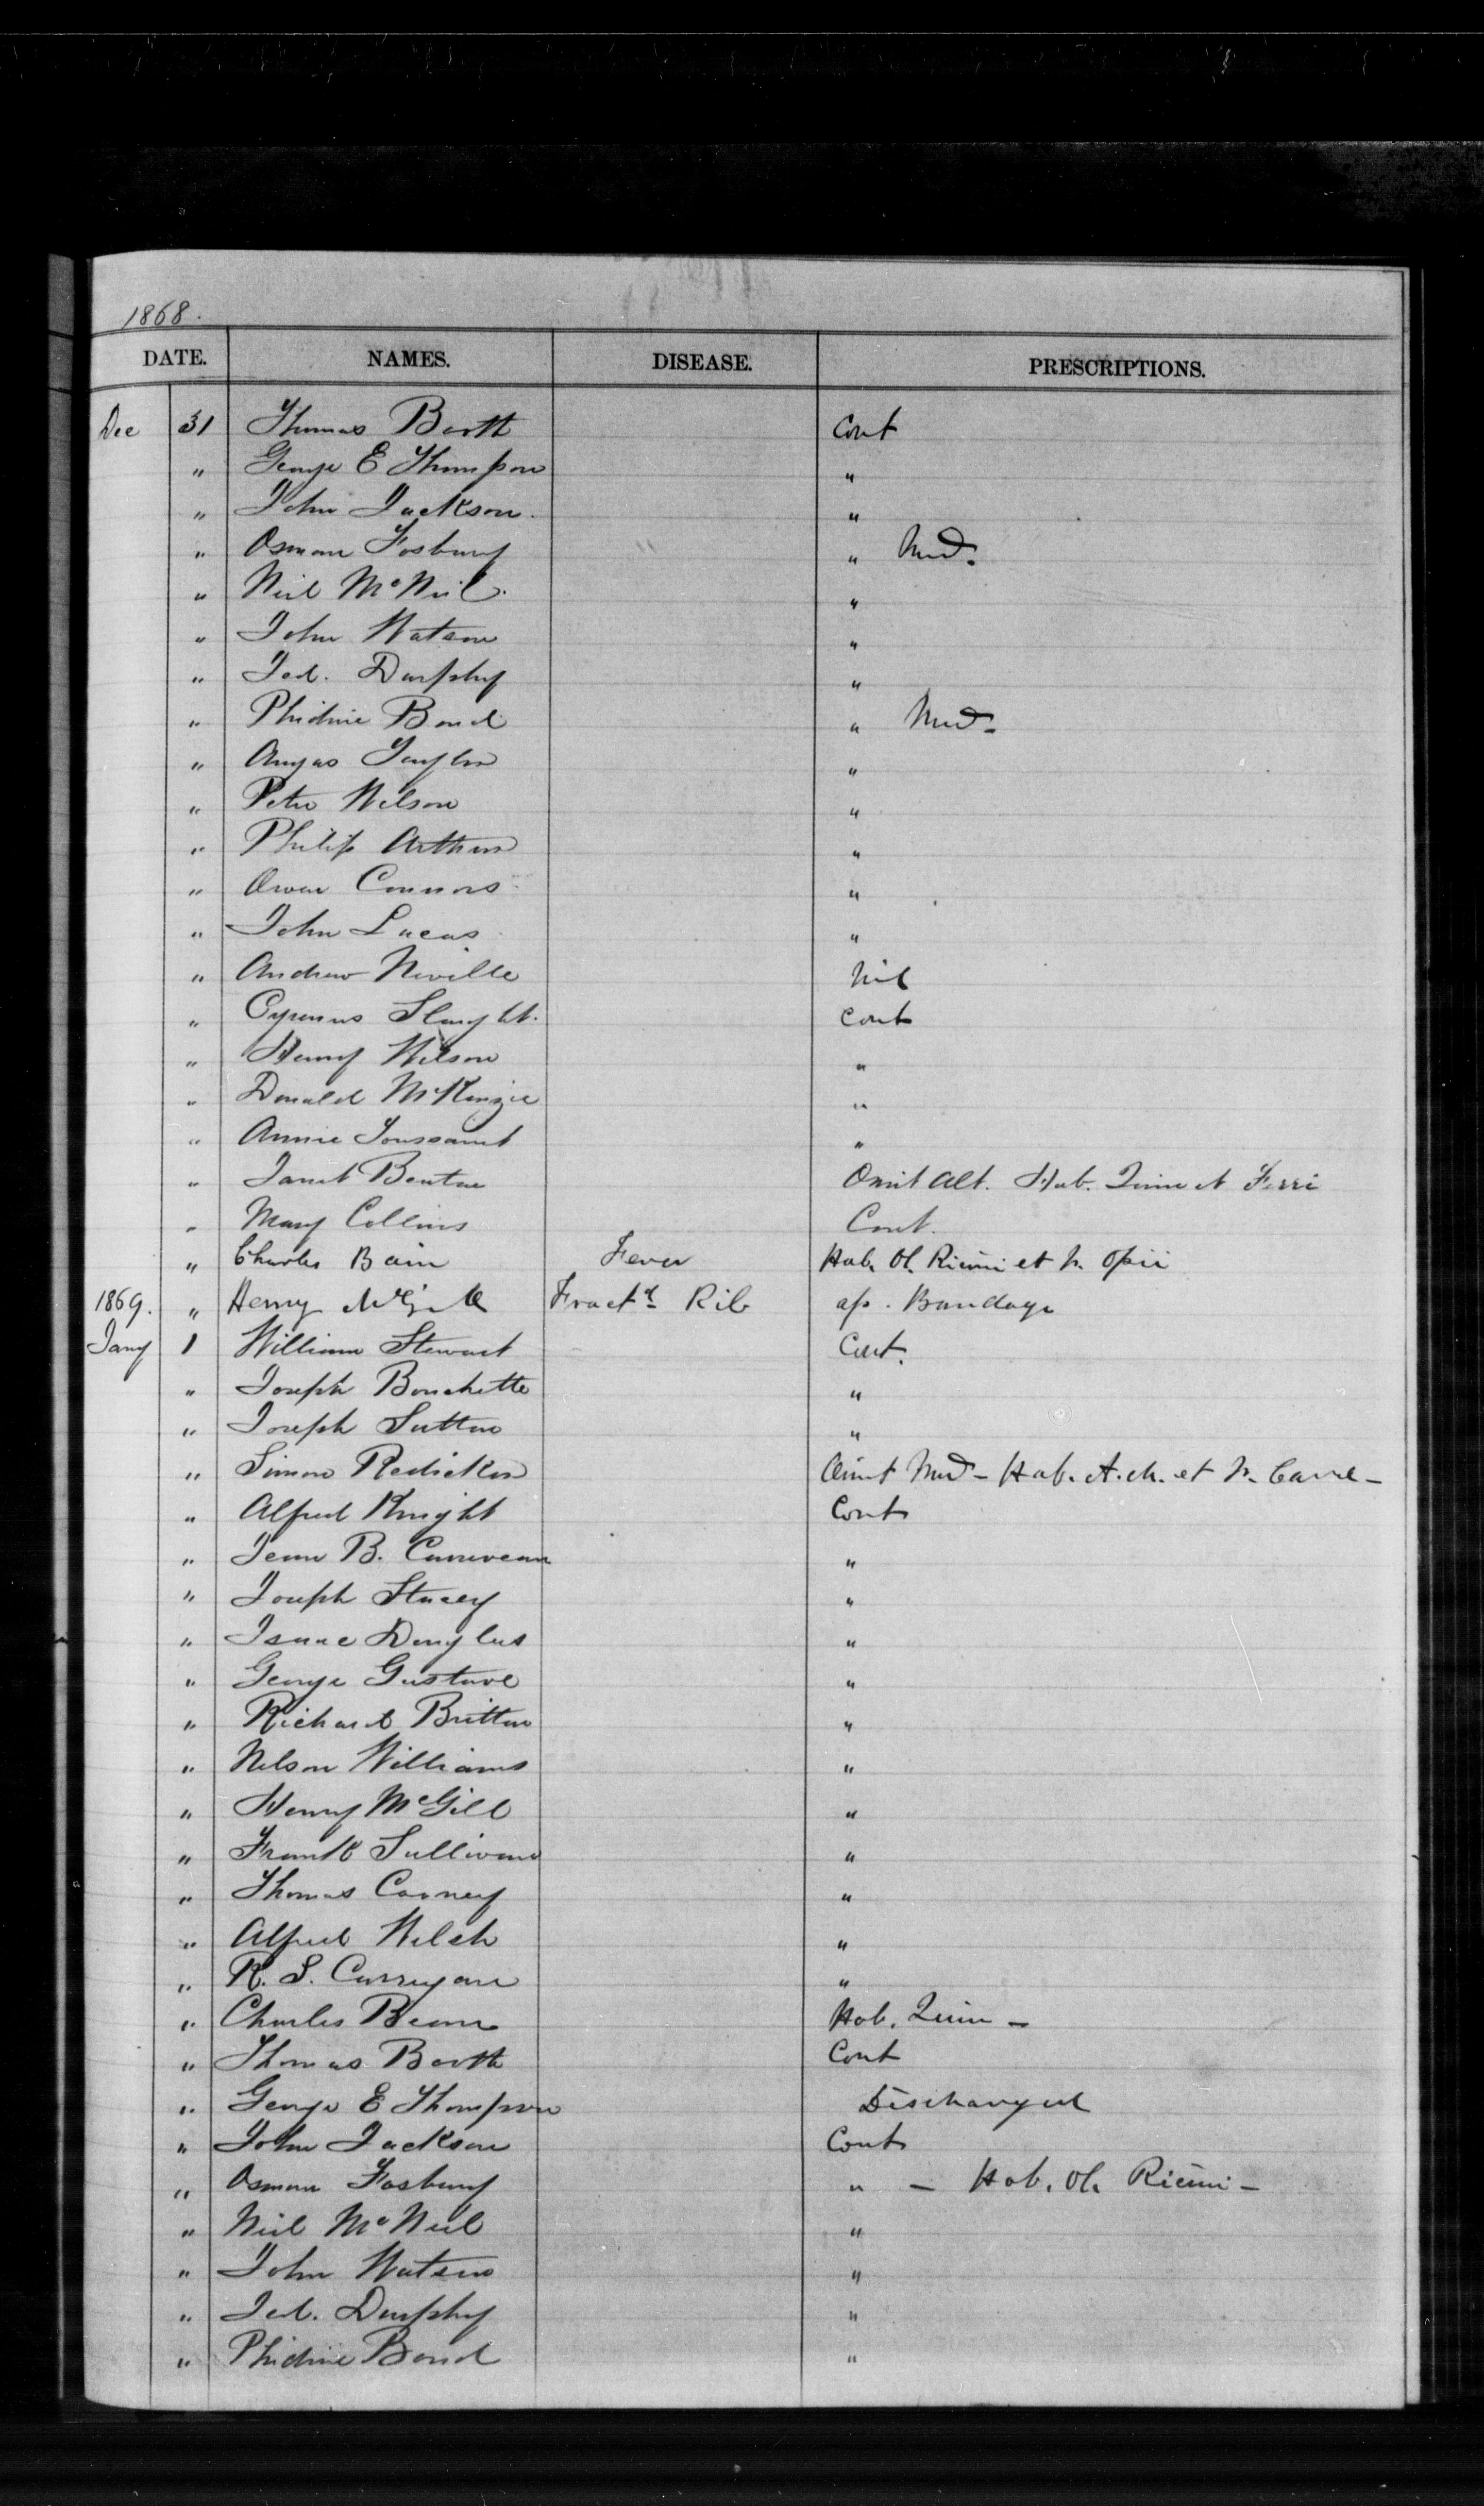 1868.
DATE. NAMES. DISEASE. PRESCRIPTIONS.
Dec 31 Thomas Booth Cont
" George E Thompson "
" John Jackson. "
" Osman Fosbury " Med.
" Neil McNeil. "
" John Watson "
" Jed. Durphy "
" Phidime Bond " Med.
" Angus Taylor "
" Peter Wilson "
" Philip Arthurs "
" Owen Connors "
" John Lucas "
" Andrew Neville Nil
" Cyrenus Slaught. Cont
" Henry Wilson "
" Donald McKenzie "
" Annie Toussaint "
" Janet Benton Omit Alt. Hab. Quin et Ferri
" Mary Collins Cont.
" Charles Bain Fever Hab. Ol. Ricini et Tr. Opii
1869. " Henry McGill Fractd Rib ap. Bandage
Jany 1 William Stewart Cont.
" Joseph Bouchette "
" Joseph Sutton "
" Simon Redicker Omit Med - Hab. et Tr.
" Alfred Knight Cont
" Jean B. "
" Joseph Stacey "
" Isaac Douglas "
" George Gustave "
" Richard Britton "
" Nelson Williams "
" Henry McGill "
" Frank Sullivan "
" Thomas Cooney "
" Alfred Welch "
" R. S. Corrigan "
" Charles Beam Hab. Quin -
" Thomas Booth Cont
" George E Thompson Discharged
" John Jackson Cont
" Osman Fosbury " - Hab. Ol. Ricini -
" Neil McNeil "
" John Watson "
" Jed. Durphy "
" Phidime Bond "